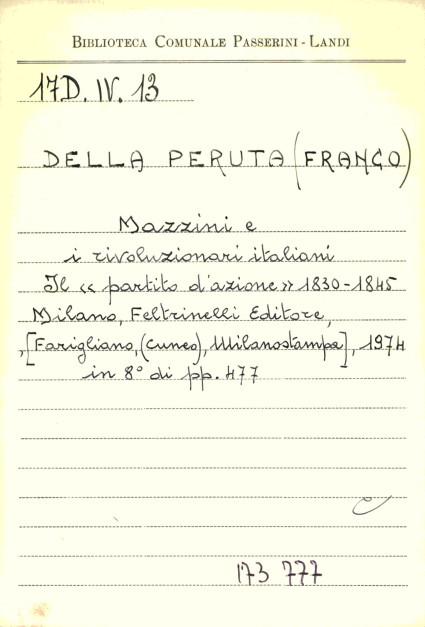 BIBLIOTECA COMUNALE PASSERINI - LANDI
17D. IV. 13
DELLA PERUTA (FRANCO)
Mazzini e
i rivoluzionari italiani
Il « partito d'azione » 1830-1845
Milano, Feltrinelli Editore,
, [Farigliano, (Cuneo), Milanostampa], 1974
in 8° di pp. 477
173 777